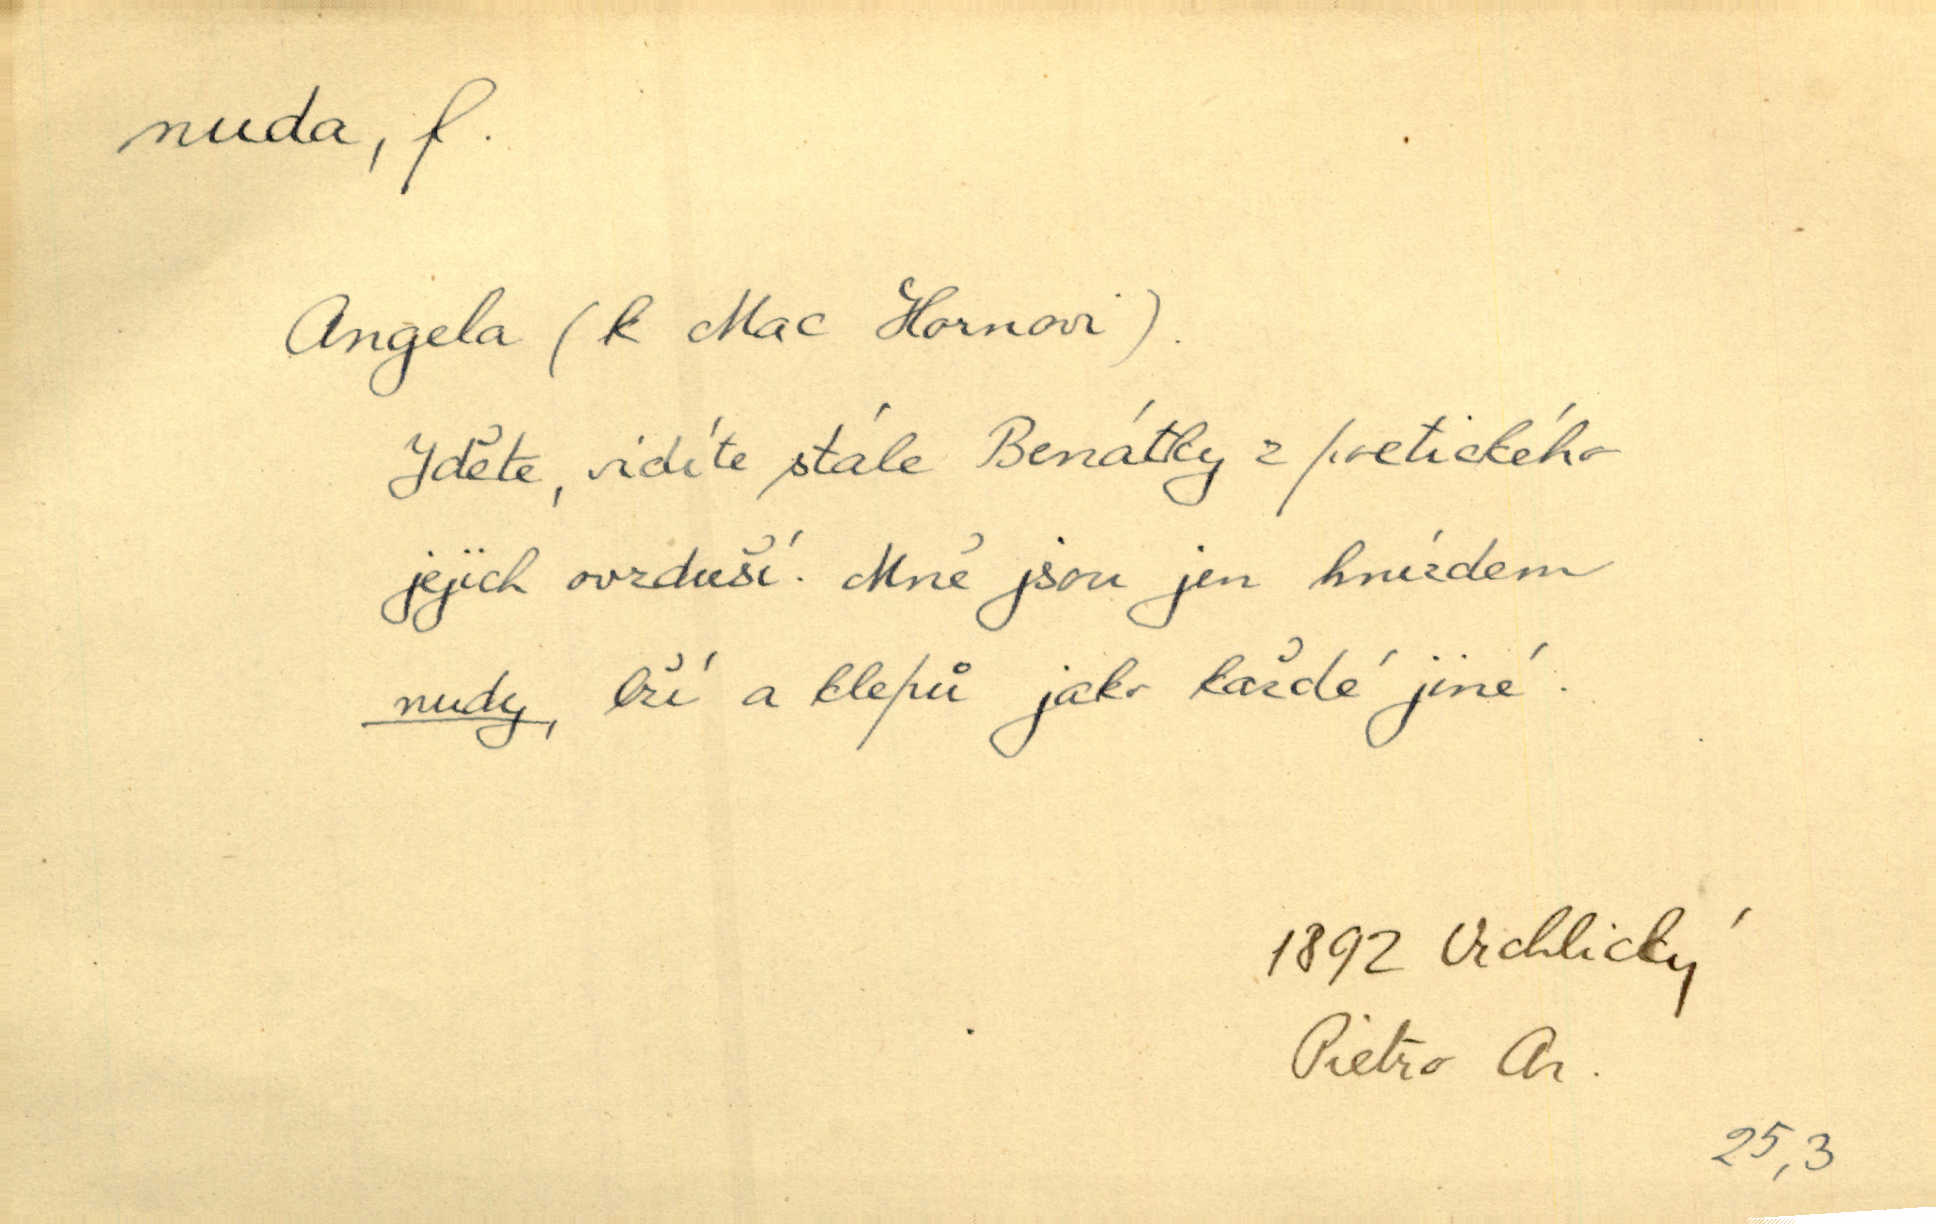 nuda, f.
Angela (k Mac Hornovi).
Jděte, vidíte stále Benátky z poetického
jejich ovzduší. Mně jsou jen hnízdem
nudy, lží a klepů jako každé jiné.
1892 Vrchlický
Pietro Ar.
25,3